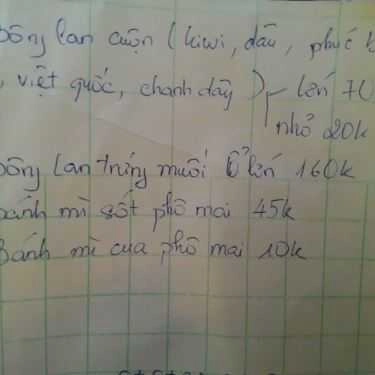 Bông lan cuộn (kiwi, dâu, phúc
, việt quốc, chanh dây) lớn 70
nhỏ 20k
Bông lan trứng muối ổ lớn 160k
Bánh mì sốt phô mai 45k
Bánh mì cua phô mai 10k